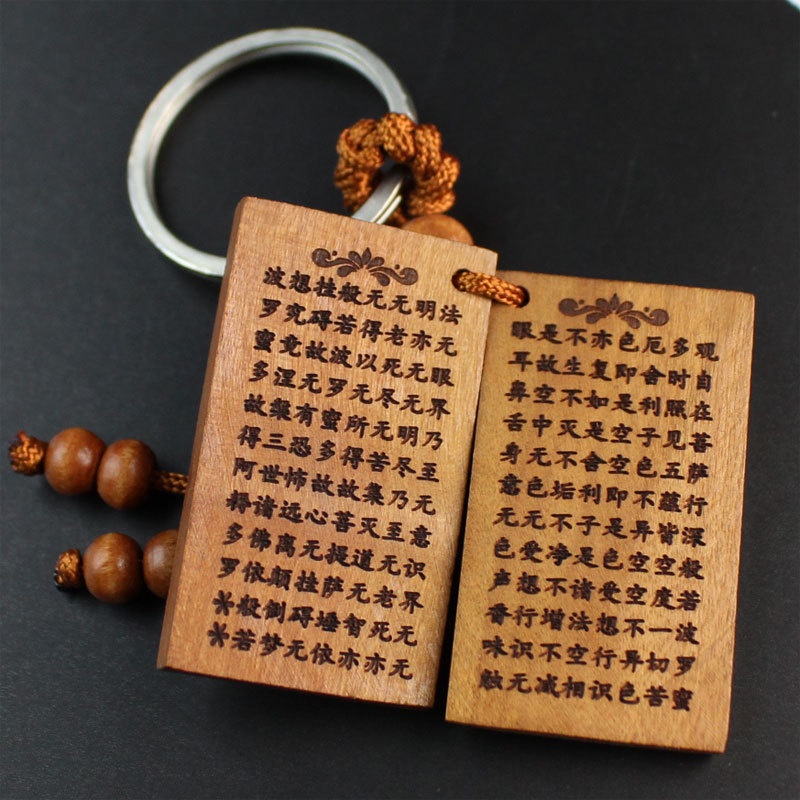 观自在菩萨行深般若波罗蜜
多时照见五蕴皆空度一切苦
厄舍利子色不异空空不异色
色即是空空即是色受想行识
亦复如是舍利子是诸法空相
不生不灭不垢不净不增不减
是故空中无色无受想行识无
眼耳鼻舌身意无色声香味触
法无眼界乃至无意识界无无
明亦无无明尽乃至无老死亦
无老死尽无苦集灭道无智亦
无得以无所得故菩提萨埵依
般若波罗蜜多故心无挂碍无
挂碍故无有恐怖远离颠倒梦
想究竟涅槃三世诸佛依般若
波罗蜜多故得阿耨多罗**